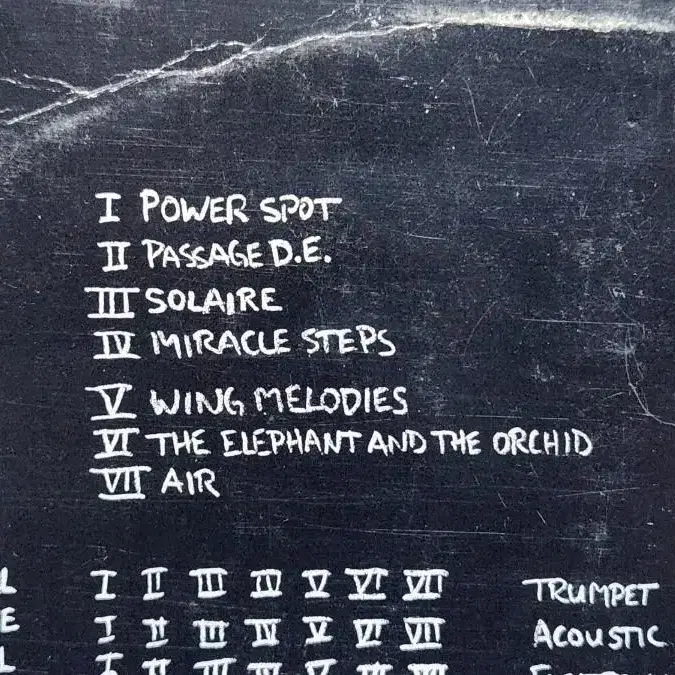 I POWER SPOT
II PASSAGE D.E.
III SOLAIRE
IV MIRACLE STEPS
V WING MELODIES
VI THE ELEPHANT AND THE ORCHID
VII AIR
L I II III IV V VI VII TRUMPET
E I II III IV V VI VII ACOUSTIC
L I II III IV V